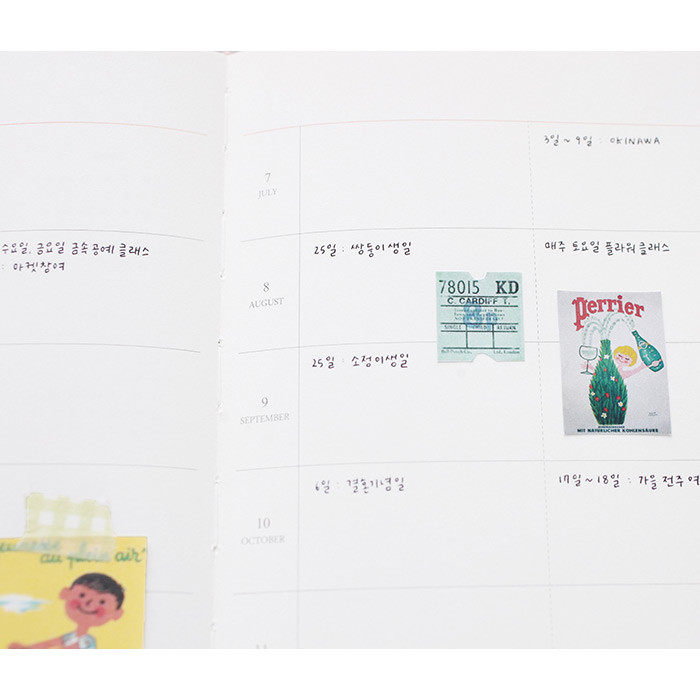 수요일, 금요일 금속공예 클래스
: 마켓참여
au plein air"
7
JULY
3일~9일 : OKINAWA
8
AUGUST
25일 : 쌍둥이생일
매주 토요일 플라워클래스
78015 KD
C. CARDIFF T.
SINGLE
RETURN
Perrier
MIT NATÜRLICHER KOHLENSÄURE
9
SEPTEMBER
25일 : 소정이생일
10
OCTOBER
6일 : 결혼기념일
17일~18일 : 가을 전주여